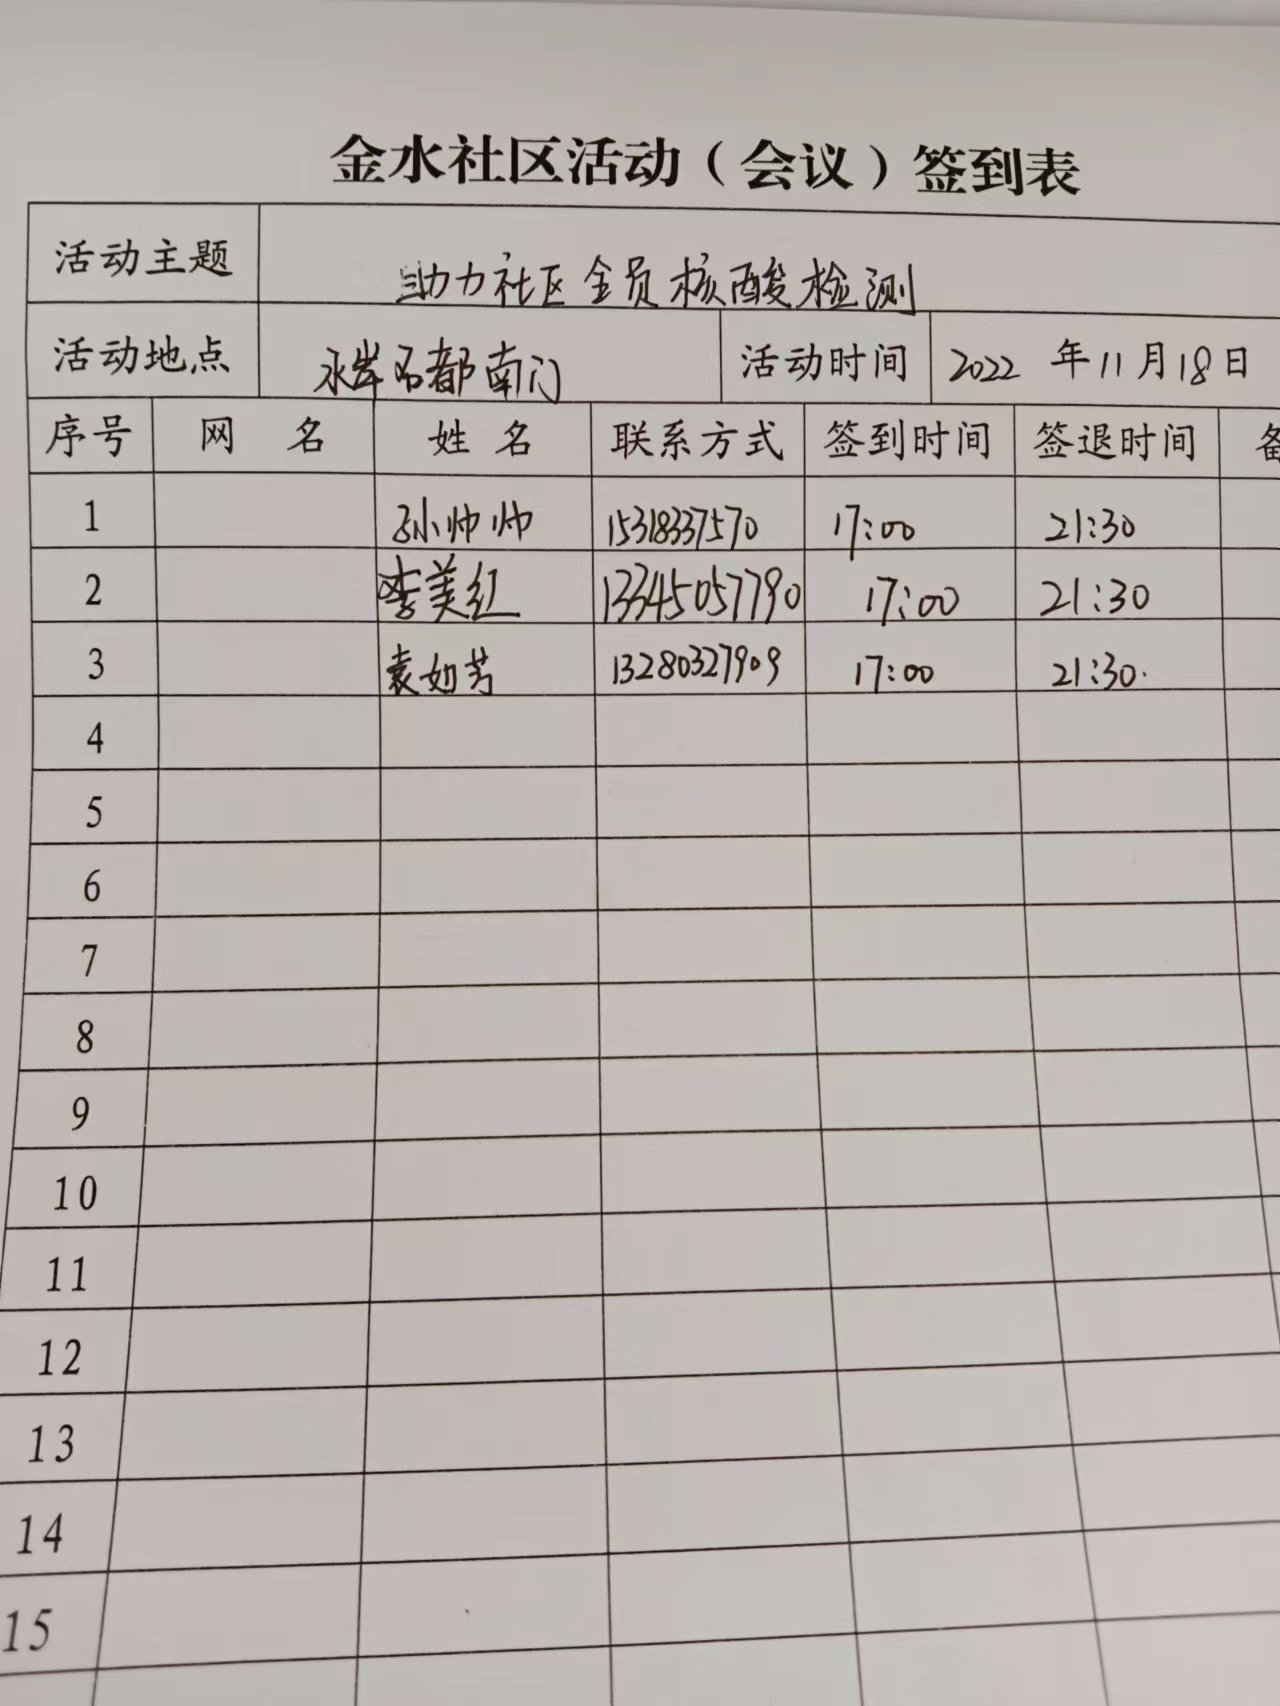 金水社区活动（会议）签到表
活动主题 助力社区全员核酸检测
活动地点 水岸名都南门 活动时间 2022 年 11 月 18 日
序号 网 名 姓 名 联系方式 签到时间 签退时间
1 孙帅帅 15318337570 17:00 21:30
2 李美红 13345057790 17:00 21:30
3 袁如芳 13280327909 17:00 21:30
4
5
6
7
8
9
10
11
12
13
14
15